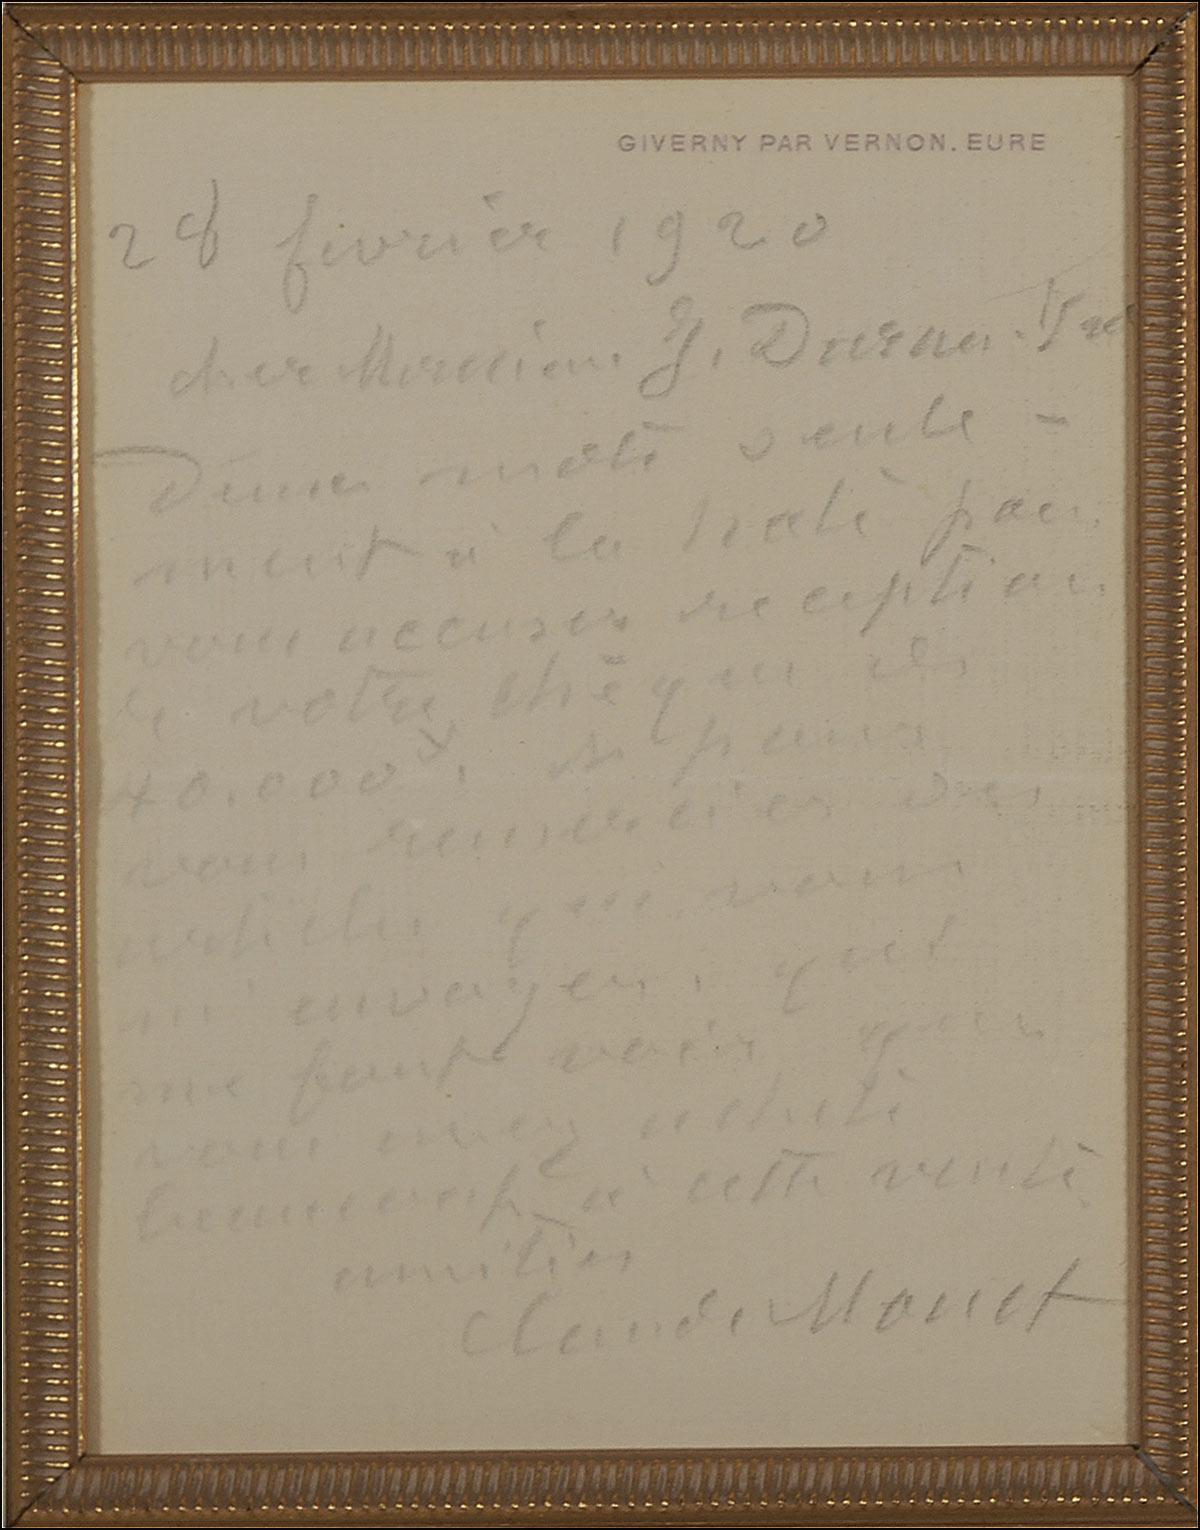 GIVERNY PAR VERNON. EURE
28 février 1920
cher Monsieur J. Durand-Ruel
Deux mots seule-
ment à la hate pour
vous accuser reception
de votre chèque de
40.000f. et pour
vous remercier des
articles que vous
m'envoyez, qui
me font voir que
vous avez acheté
beaucoup à cette vente.
amitiés
Claude Monet